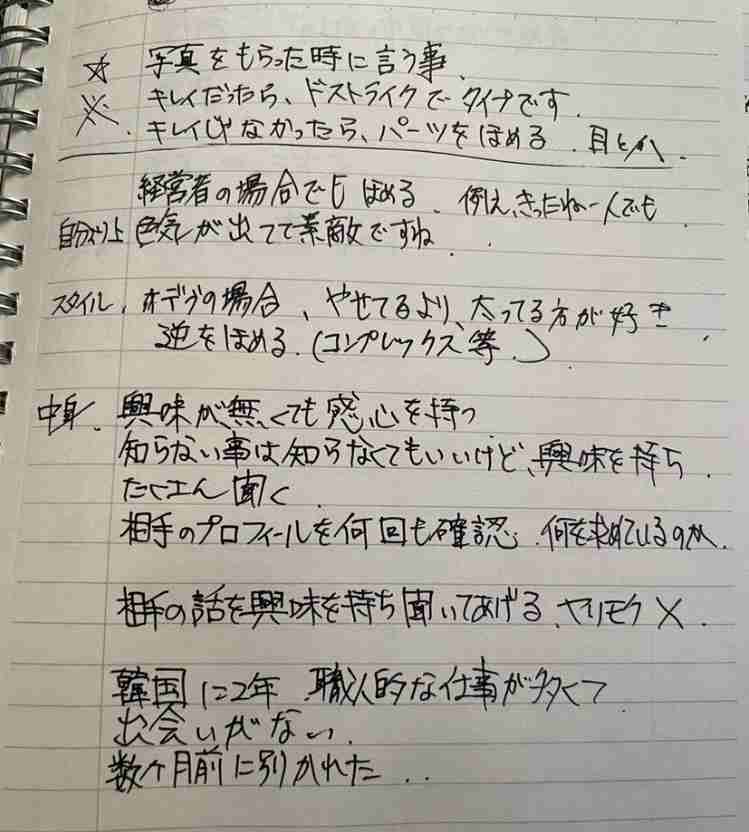 ☆ 写真をもらった時に言う事、
※ キレイだったら、ドストライクでタイプです.
キレイじゃなかったら、パーツをほめる. 目とか.
経営者の場合でもほめる. 例え、きったねー人でも.
自分より上 色気が出てて素敵ですね.
スタイル. オデブの場合、やせてるより、太ってる方が好き
逆をほめる. (コンプレックス等.)
中身. 興味が無くても感心を持つ
知らない事は知らなくてもいいけど、興味を持ち.
たくさん聞く.
相手のプロフィールを何回も確認. 何を求めているのか.
相手の話を興味を持ち聞いてあげる. ヤリモク×.
韓国に2年 職人的な仕事が多くて
出会いがない.
数ヶ月前に別かれた..